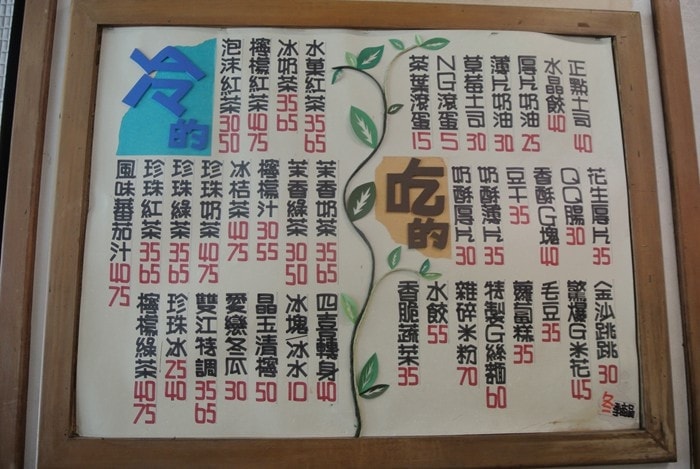 吃的
正點土司 40
水晶餃 40
厚片奶油 25
薄片奶油 30
草莓土司 30
NG滾蛋 5
茶葉滾蛋 15
花生厚片 35
QQ腸 30
香酥G塊 40
豆干 35
奶酥薄片 35
奶酥厚片 30
金沙跳跳 30
驚爆G米花 45
毛豆 35
蘿蔔糕 35
特製G絲麵 60
雜碎米粉 70
水餃 55
香脆蔬菜 35
冬
冷的
水菓紅茶 35 65
冰奶茶 35 65
檸檬紅茶 40 75
泡沫紅茶 30 50
茉香奶茶 35 65
茉香綠茶 30 50
檸檬汁 30 55
冰桔茶 40 75
珍珠奶茶 40 75
珍珠綠茶 35 65
珍珠紅茶 35 65
風味蕃茄汁 40 75
四喜轉身 40
冰塊/冰水 10
晶玉清檸 50
愛戀冬瓜 30
雙江特調 35 65
珍珠冰 25 40
檸檬綠茶 40 75